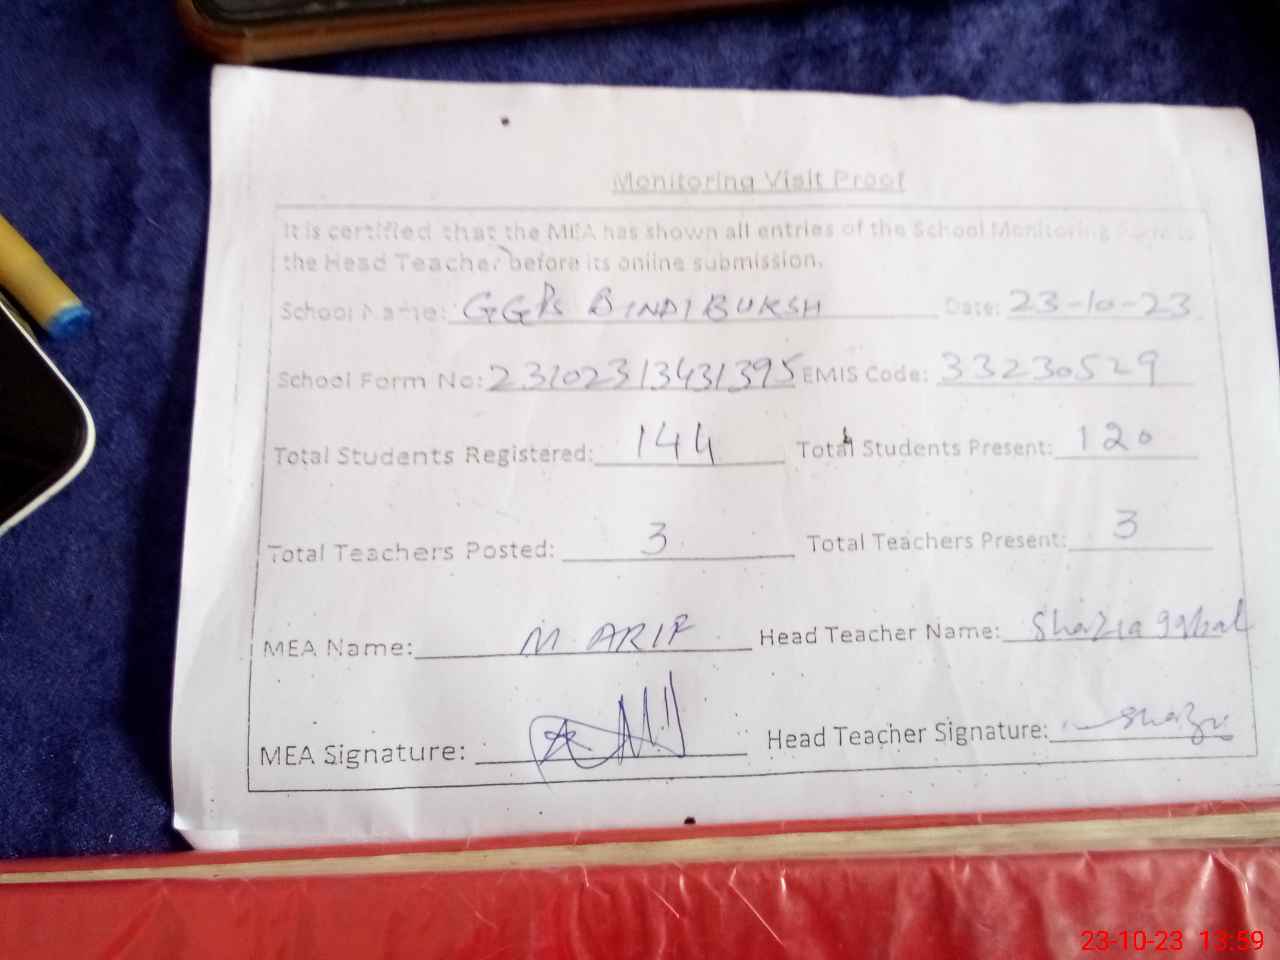 Monitoring Visit Proof
It is certified that the MEA has shown all entries of the School Monitoring Form to
the Head Teacher before its online submission.
School Name: GGPS BINDI BUKSH Date: 23-10-23
School Form No: 23102313431395 EMIS Code: 33230529
Total Students Registered: 144 Total Students Present: 120
Total Teachers Posted: 3 Total Teachers Present: 3
MEA Name: M. ARIF Head Teacher Name: Shazia Iqbal
MEA Signature: Head Teacher Signature: Shazia
23-10-23 13:59